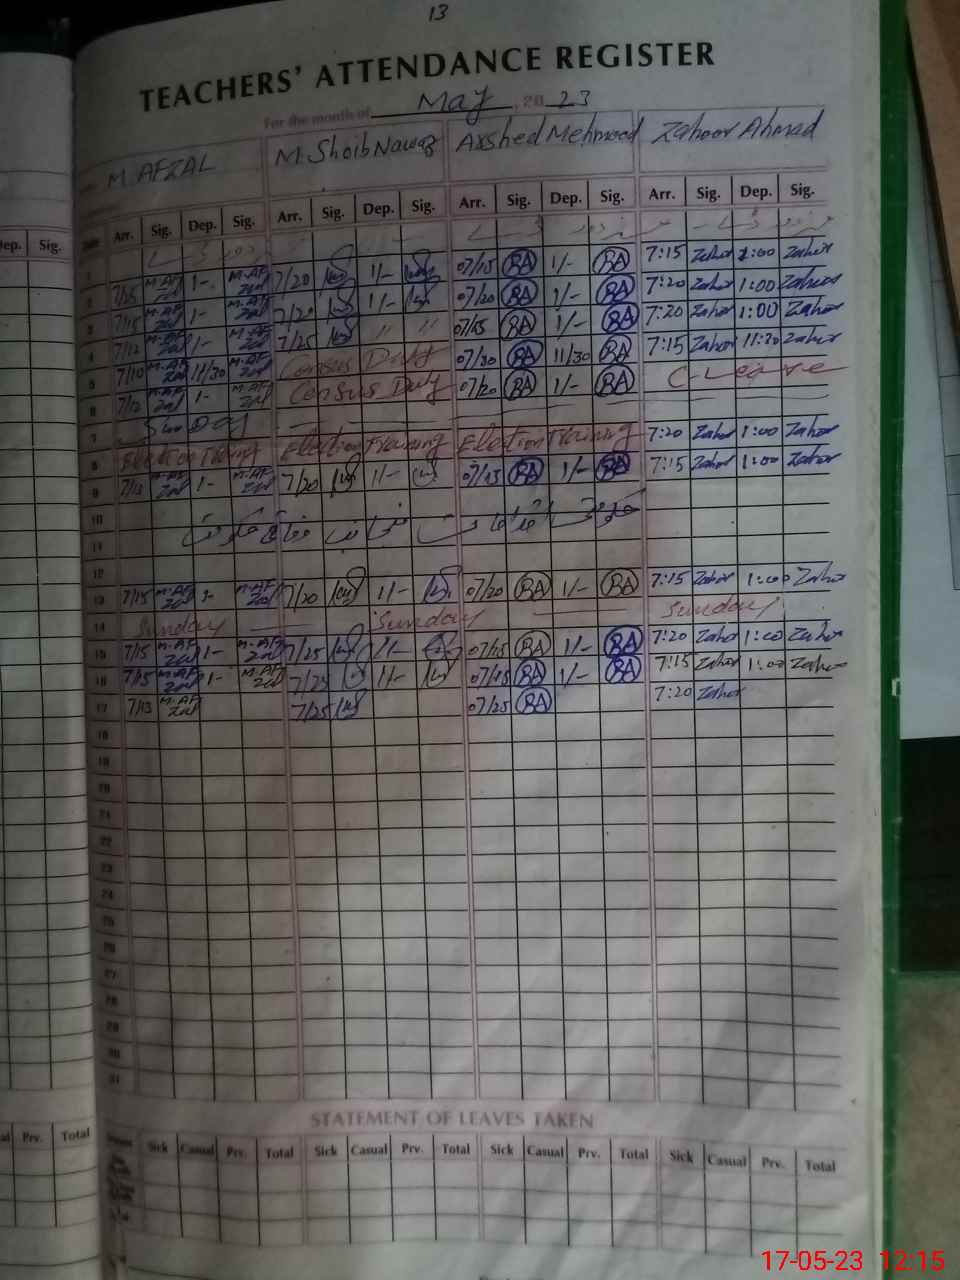 13
TEACHERS' ATTENDANCE REGISTER
For the month of May, 2023
M. AFZAL M. Shoib Nawaz Arshed Mehmood Zahoor Ahmad
Dep. Sig. Date Arr. Sig. Dep. Sig. Arr. Sig. Dep. Sig. Arr. Sig. Dep. Sig. Arr. Sig. Dep. Sig.
1
2 7/15 M.AF Zal 1- M.AF Zal 7/20 1/- 07/15 RA 1/- RA 7:15 Zahor 1:00 Zahor
3 7/15 M.AF Zal 1- M.AF Zal 7/20 1/- 07/20 RA 1/- RA 7:20 Zahor 1:00 Zahor
4 7/12 M.AF Zal 1- M.AF Zal 7/25 " " 07/15 RA 1/- RA 7:20 Zahor 1:00 Zahor
5 7/10 M.AF Zal 11/30 M.AF Zal Census Duty 07/30 RA 11/30 RA 7:15 Zahor 11:30 Zahor
6 7/12 M.AF Zal 1- M.AF Zal Census Duty 07/20 RA 1/- RA C-Leave
7 Sun Day
8 Election Training Election Training Election Training 7:20 Zahor 1:00 Zahor
9 7/13 M.AF Zal 1- M.AF Zal 7/20 1/- 07/15 RA 1/- RA 7:15 Zahor 1:00 Zahor
10
11
12
13 7/15 M.AF Zal 1- M.AF Zal 7/20 1/- 07/20 RA 1/- RA 7:15 Zahor 1:00 Zahor
14 Sunday Sunday Sunday
15 7/15 M.AF Zal 1- M.AF Zal 7/25 1/- 07/15 RA 1/- RA 7:20 Zahor 1:00 Zahor
16 7/15 M.AF Zal 1- M.AF Zal 7/25 1/- 07/15 RA 1/- RA 7:15 Zahor 1:00 Zahor
17 7/13 M.AF Zal 7/25 07/25 RA 7:20 Zahor
18
19
20
21
22
23
24
25
26
27
28
29
30
31
STATEMENT OF LEAVES TAKEN
Prv. Total Sick Casual Prv. Total Sick Casual Prv. Total Sick Casual Prv. Total Sick Casual Prv. Total
17-05-23 12:15